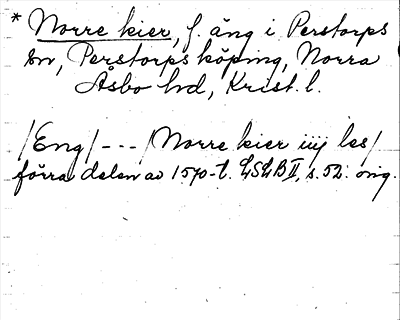 * Norre kier, f. äng i Perstorps
sn, Perstorps köping, Norra
Åsbo hd, Krist. l.
/Eng/ --- /Norre kier iiij les/
förra delen av 1570-t. LSLB II, s. 52. orig.